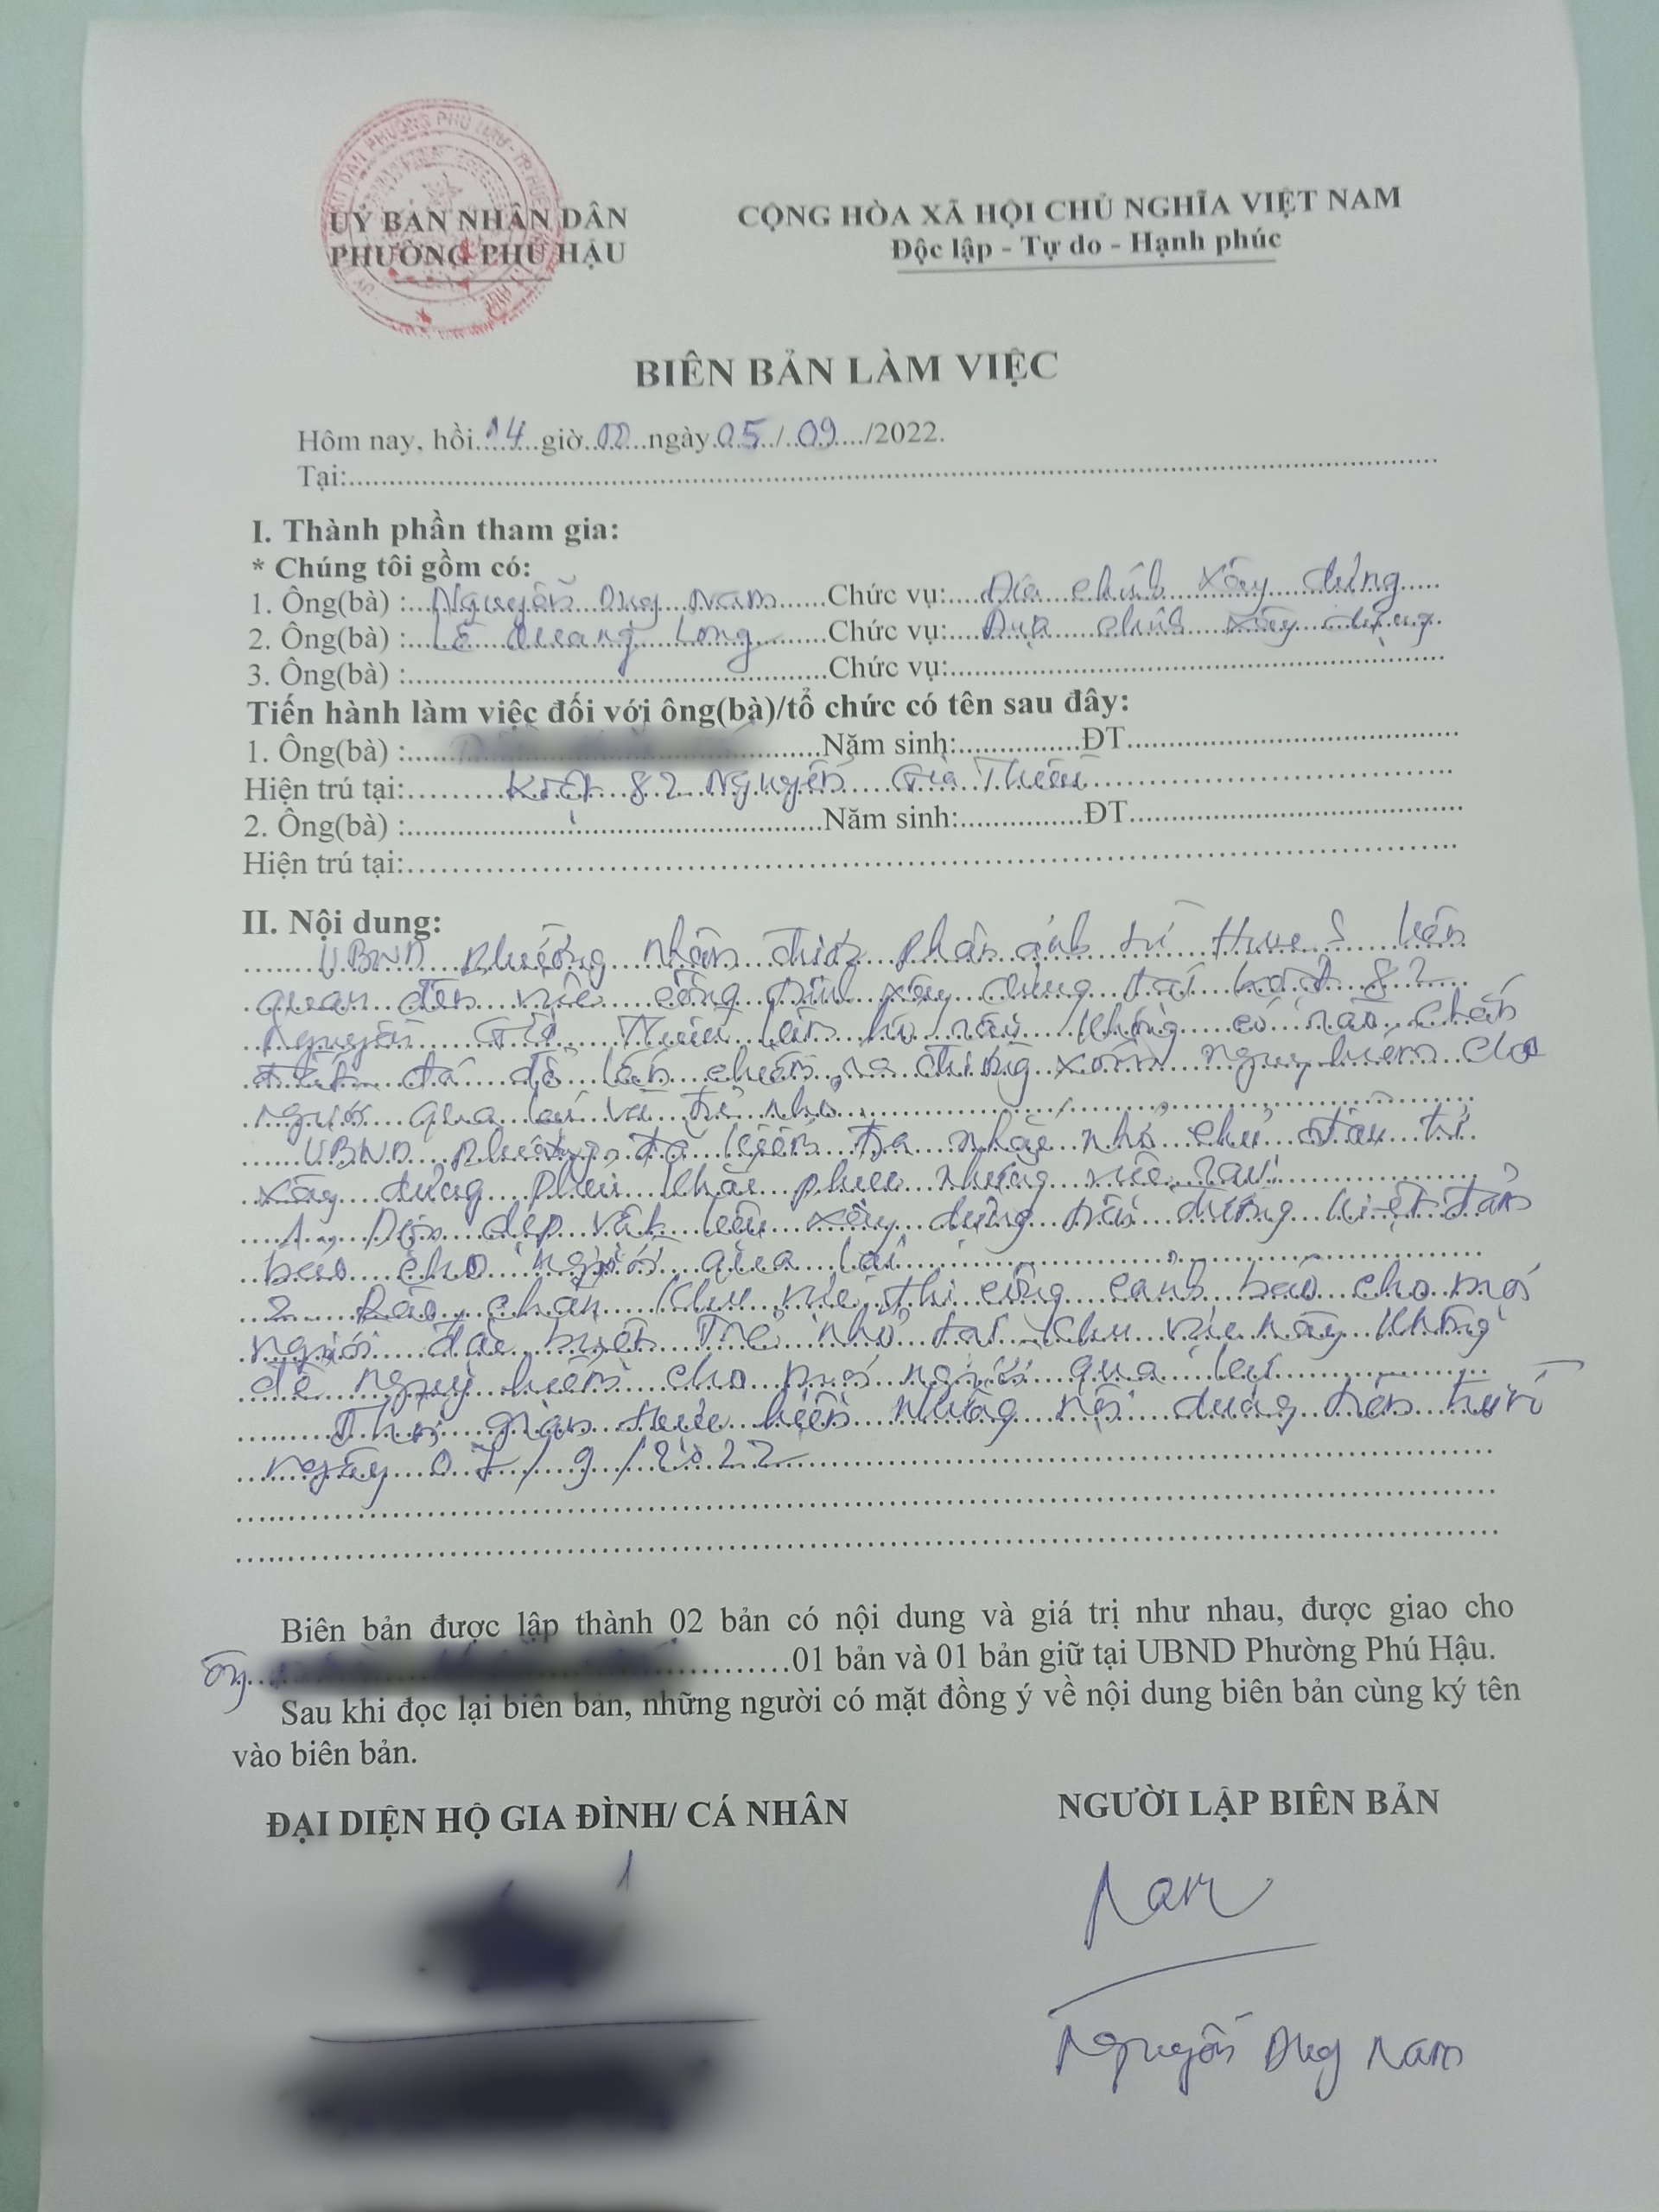 UỶ BAN NHÂN DÂN
PHƯỜNG PHÚ HẬU
CỘNG HÒA XÃ HỘI CHỦ NGHĨA VIỆT NAM
Độc lập - Tự do - Hạnh phúc
BIÊN BẢN LÀM VIỆC
Hôm nay, hồi 14 giờ 00 ngày 05/09/2022.
Tại:
I. Thành phần tham gia:
* Chúng tôi gồm có:
1. Ông(bà) : Nguyễn Duy Nam Chức vụ: Địa chính xây dựng
2. Ông(bà) : Lê Quang Long Chức vụ: Địa chính xây dựng
3. Ông(bà) : Chức vụ:
Tiến hành làm việc đối với ông(bà)/tổ chức có tên sau đây:
1. Ông(bà) : Năm sinh: ĐT
Hiện trú tại: Kiệt 82 Nguyễn Gia Thiều
2. Ông(bà) : Năm sinh: ĐT
Hiện trú tại:
II. Nội dung:
UBND phường nhận được phản ánh từ Hue S liên
quan đến việc công trình xây dựng tại kiệt 82
Nguyễn Gia Thiều không có rào chắn
đất đá đổ lấn chiếm ra đường xóm nguy hiểm cho
người qua lại và trẻ nhỏ
UBND phường đã kiểm tra nhắc nhở chủ đầu tư
xây dựng phải khắc phục những việc sau:
1. Dọn dẹp vật liệu xây dựng trên đường kiệt đảm
bảo cho người qua lại
2. Rào chắn khu vực thi công cảnh báo cho mọi
người đặc biệt trẻ nhỏ tại khu vực này không
để nguy hiểm cho mọi người qua lại
Thời gian thực hiện những nội dung trên trước
ngày 07/9/2022
Biên bản được lập thành 02 bản có nội dung và giá trị như nhau, được giao cho
ông 01 bản và 01 bản giữ tại UBND Phường Phú Hậu.
Sau khi đọc lại biên bản, những người có mặt đồng ý về nội dung biên bản cùng ký tên
vào biên bản.
ĐẠI DIỆN HỘ GIA ĐÌNH/ CÁ NHÂN
NGƯỜI LẬP BIÊN BẢN
Nam
Nguyễn Duy Nam